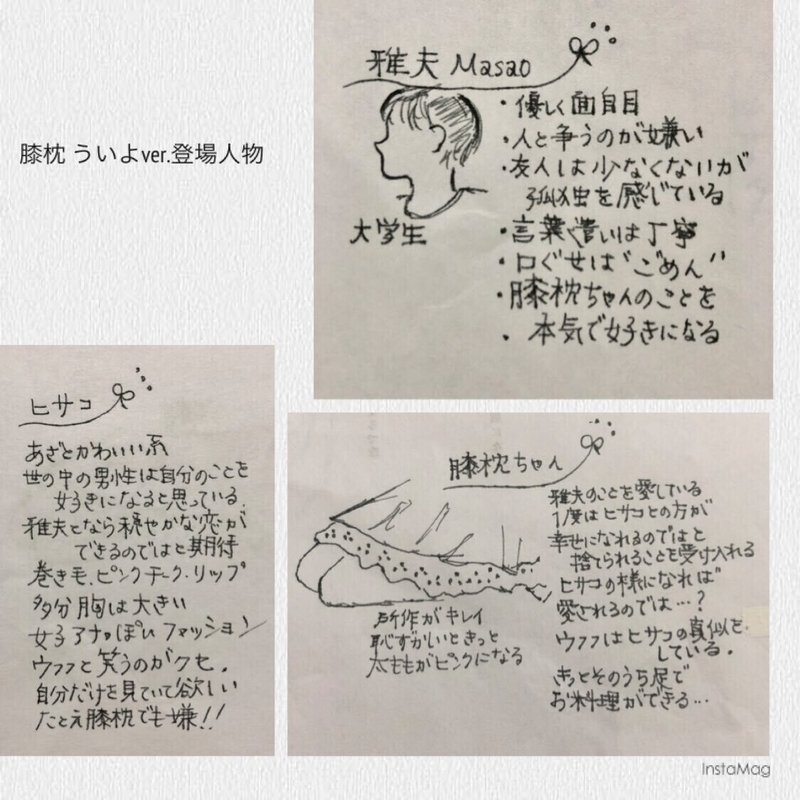 膝枕 ういよver.登場人物
雅夫 Masao
大学生
・優しく面自目
・人と争うのが嫌い
・友人は少なくないが
孤独を感じている
・言葉遣いは丁寧
・口ぐせは"ごめん"
・膝枕ちゃんのことを
・本気で好きになる
ヒサコ
あざとかわいい系
世の中の男性は自分のことを
好きになると思っている.
雅夫となら穏やかな恋が
できるのではと期待
巻き毛.ピンクチーク.リップ
多分胸は大きい
女子アナっぽいファッション
ウフフと笑うのがクセ.
自分だけを見ていて欲しい
たとえ膝枕でも嫌!!
膝枕ちゃん
所作がキレイ
恥ずかしいときっと
太ももがピンクになる
雅夫のことを愛している
1度はヒサコとの方が
幸せになれるのではと
捨てられることを受け入れる
ヒサコの様になれば
愛されるのでは…?
ウフフはヒサコの真似を
している.
きっとそのうち足で
お料理ができる…
InstaMag